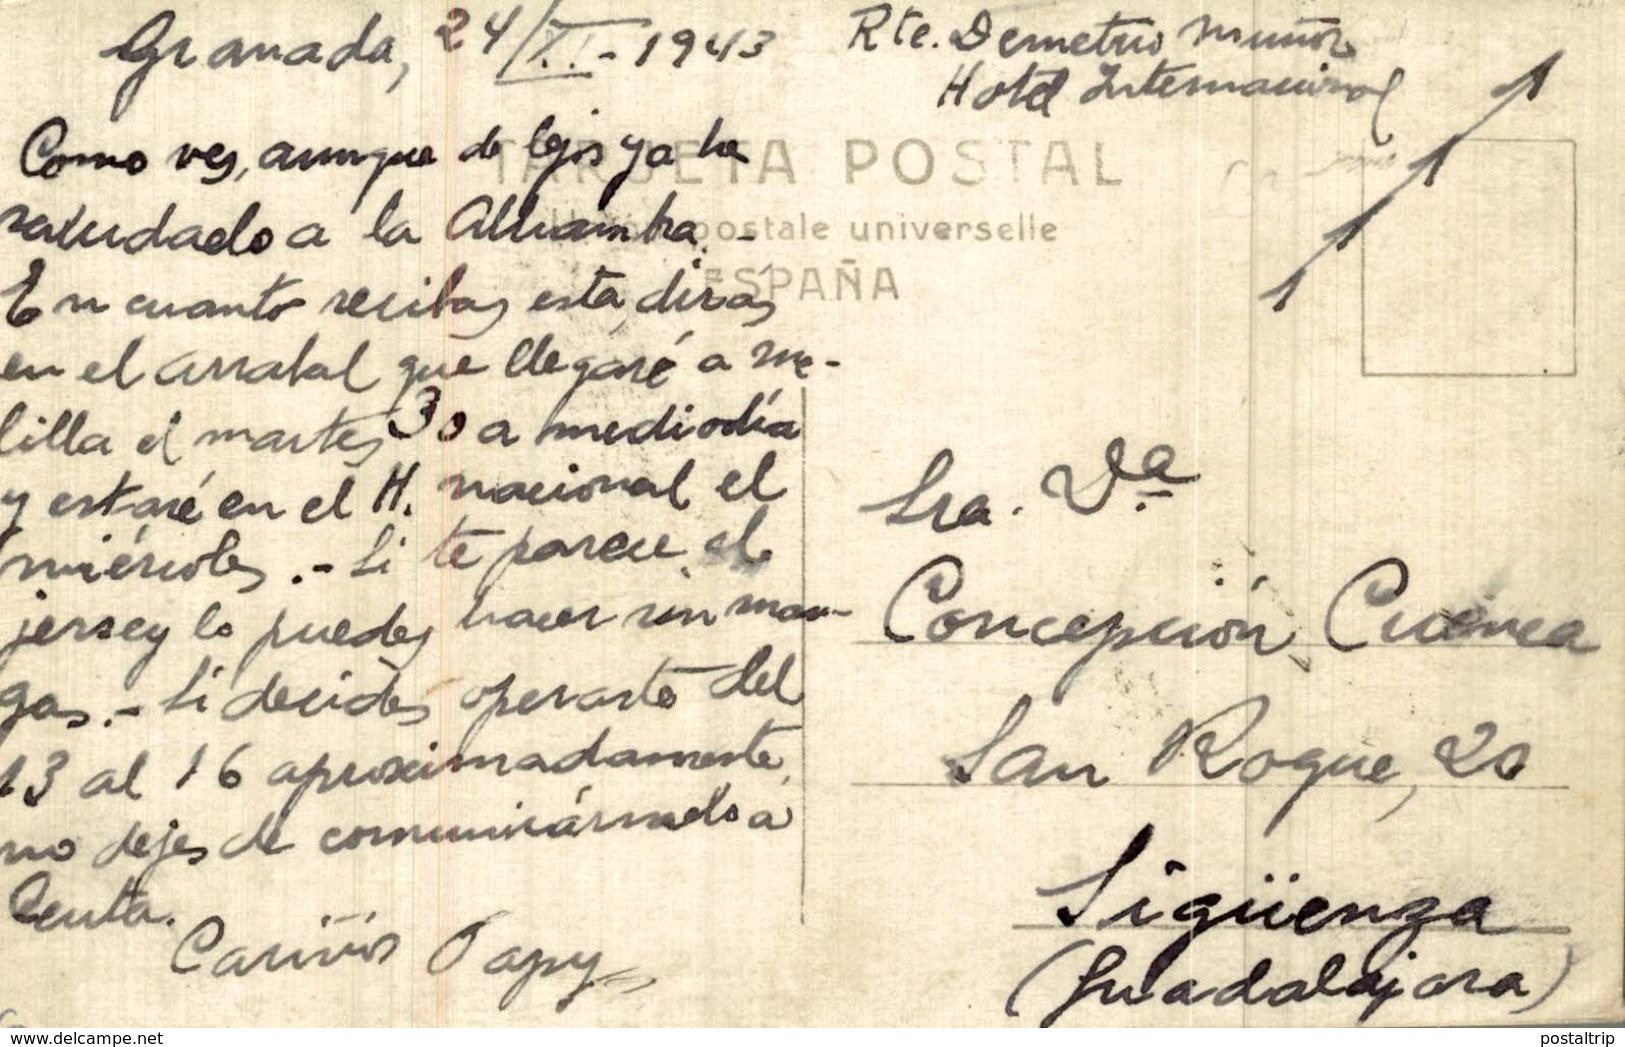 Granada, 24/XI-1943
Como ves, aunque de lejos ya he
saludado a la Alhambra.-
En cuanto recibas esta, diras
en el arrabal que llegaré a Me-
lilla el martes 30 a mediodía
y estaré en el H. nacional el
miércoles.- Si te parece, el
jersey lo puedes hacer sin man-
gas.- Si decides operarte del
13 al 16 aproximadamente,
no dejes de comunicármelo a
Ceuta.
Cariños Papy
Rte. Demetrio Muñoz
Hotel Internacional
TARJETA POSTAL
postale universelle
ESPAÑA
Sra. Dª
Concepción Cuenca
San Roque, 20
Sigüenza
(Guadalajara)
postaltrip.com
postaltrip